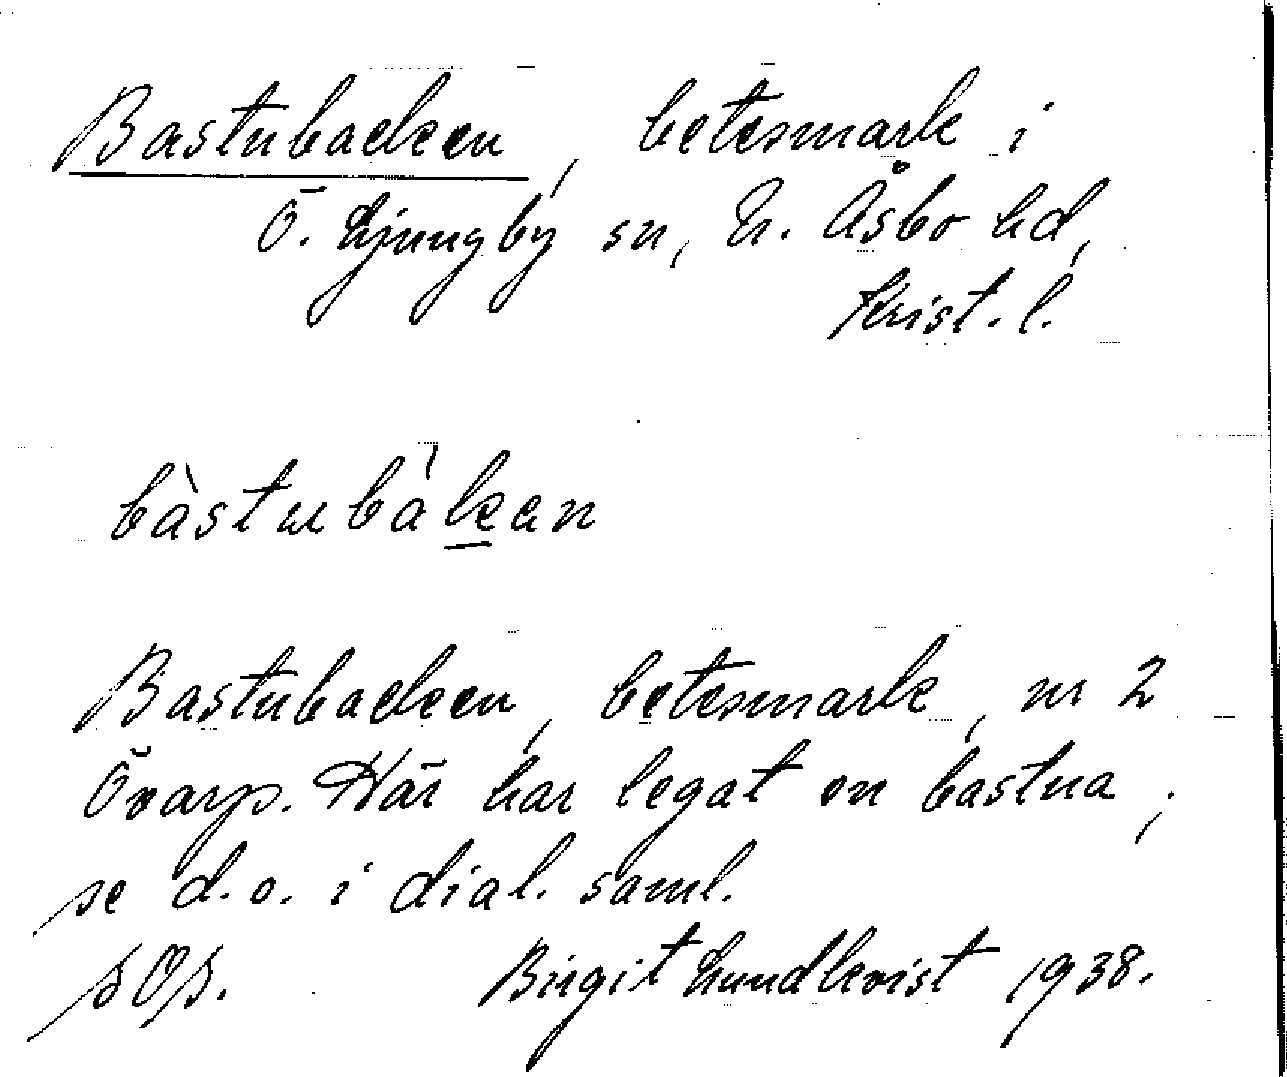 Bastubacken, betesmark i
Ö. Ljungby sn, N. Åsbo hd,
Krist. l.
bàstubàkan
Bastubacken, betesmark, nr 2
Övarp. Här har legat en bastua;
se d.o. i dial. saml.
Birgit Lundkvist 1938.